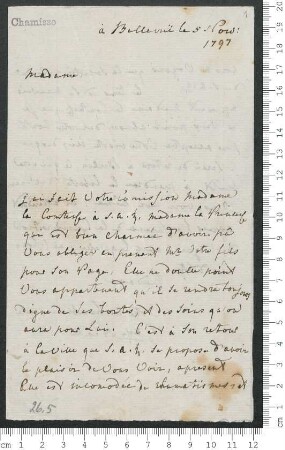 Chamisso
à Bellevue le 5 Nov:
1797
Madame
J'ai fait votre comission Madame
la Comtesse à S.A.R. Madame la Princesse
qui est bien charmée d'avoir pû
Vous obliger en prenent Mr votre fils
pour son Page. Elle ne doutte point
Vous appartenant qu'il se rendra toujours
digne de ses bontés, et des soins qu'on
aura pour Lui. C'est à son retour
à la Ville que S.A.R. se propose d'avoir
le plaisir de Vous Voir, apresent
Elle est incomodée de rhumatismes et
26.5
cm 1 2 3 4 5 6 7 8 9 10 11 12